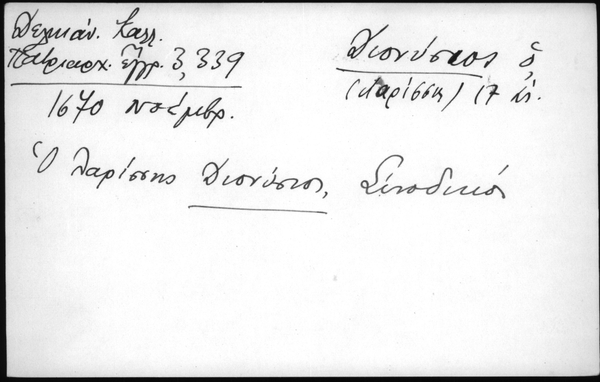 Δελικάν. Καλλ.
Πατριαρχ. ἔγγρ. 3, 339
1670 νοέμβρ.
Διονύσιος ὁ
(Λαρίσσης) 17 αἰ.
Ὁ Λαρίσσης Διονύσιος, Συνοδικός